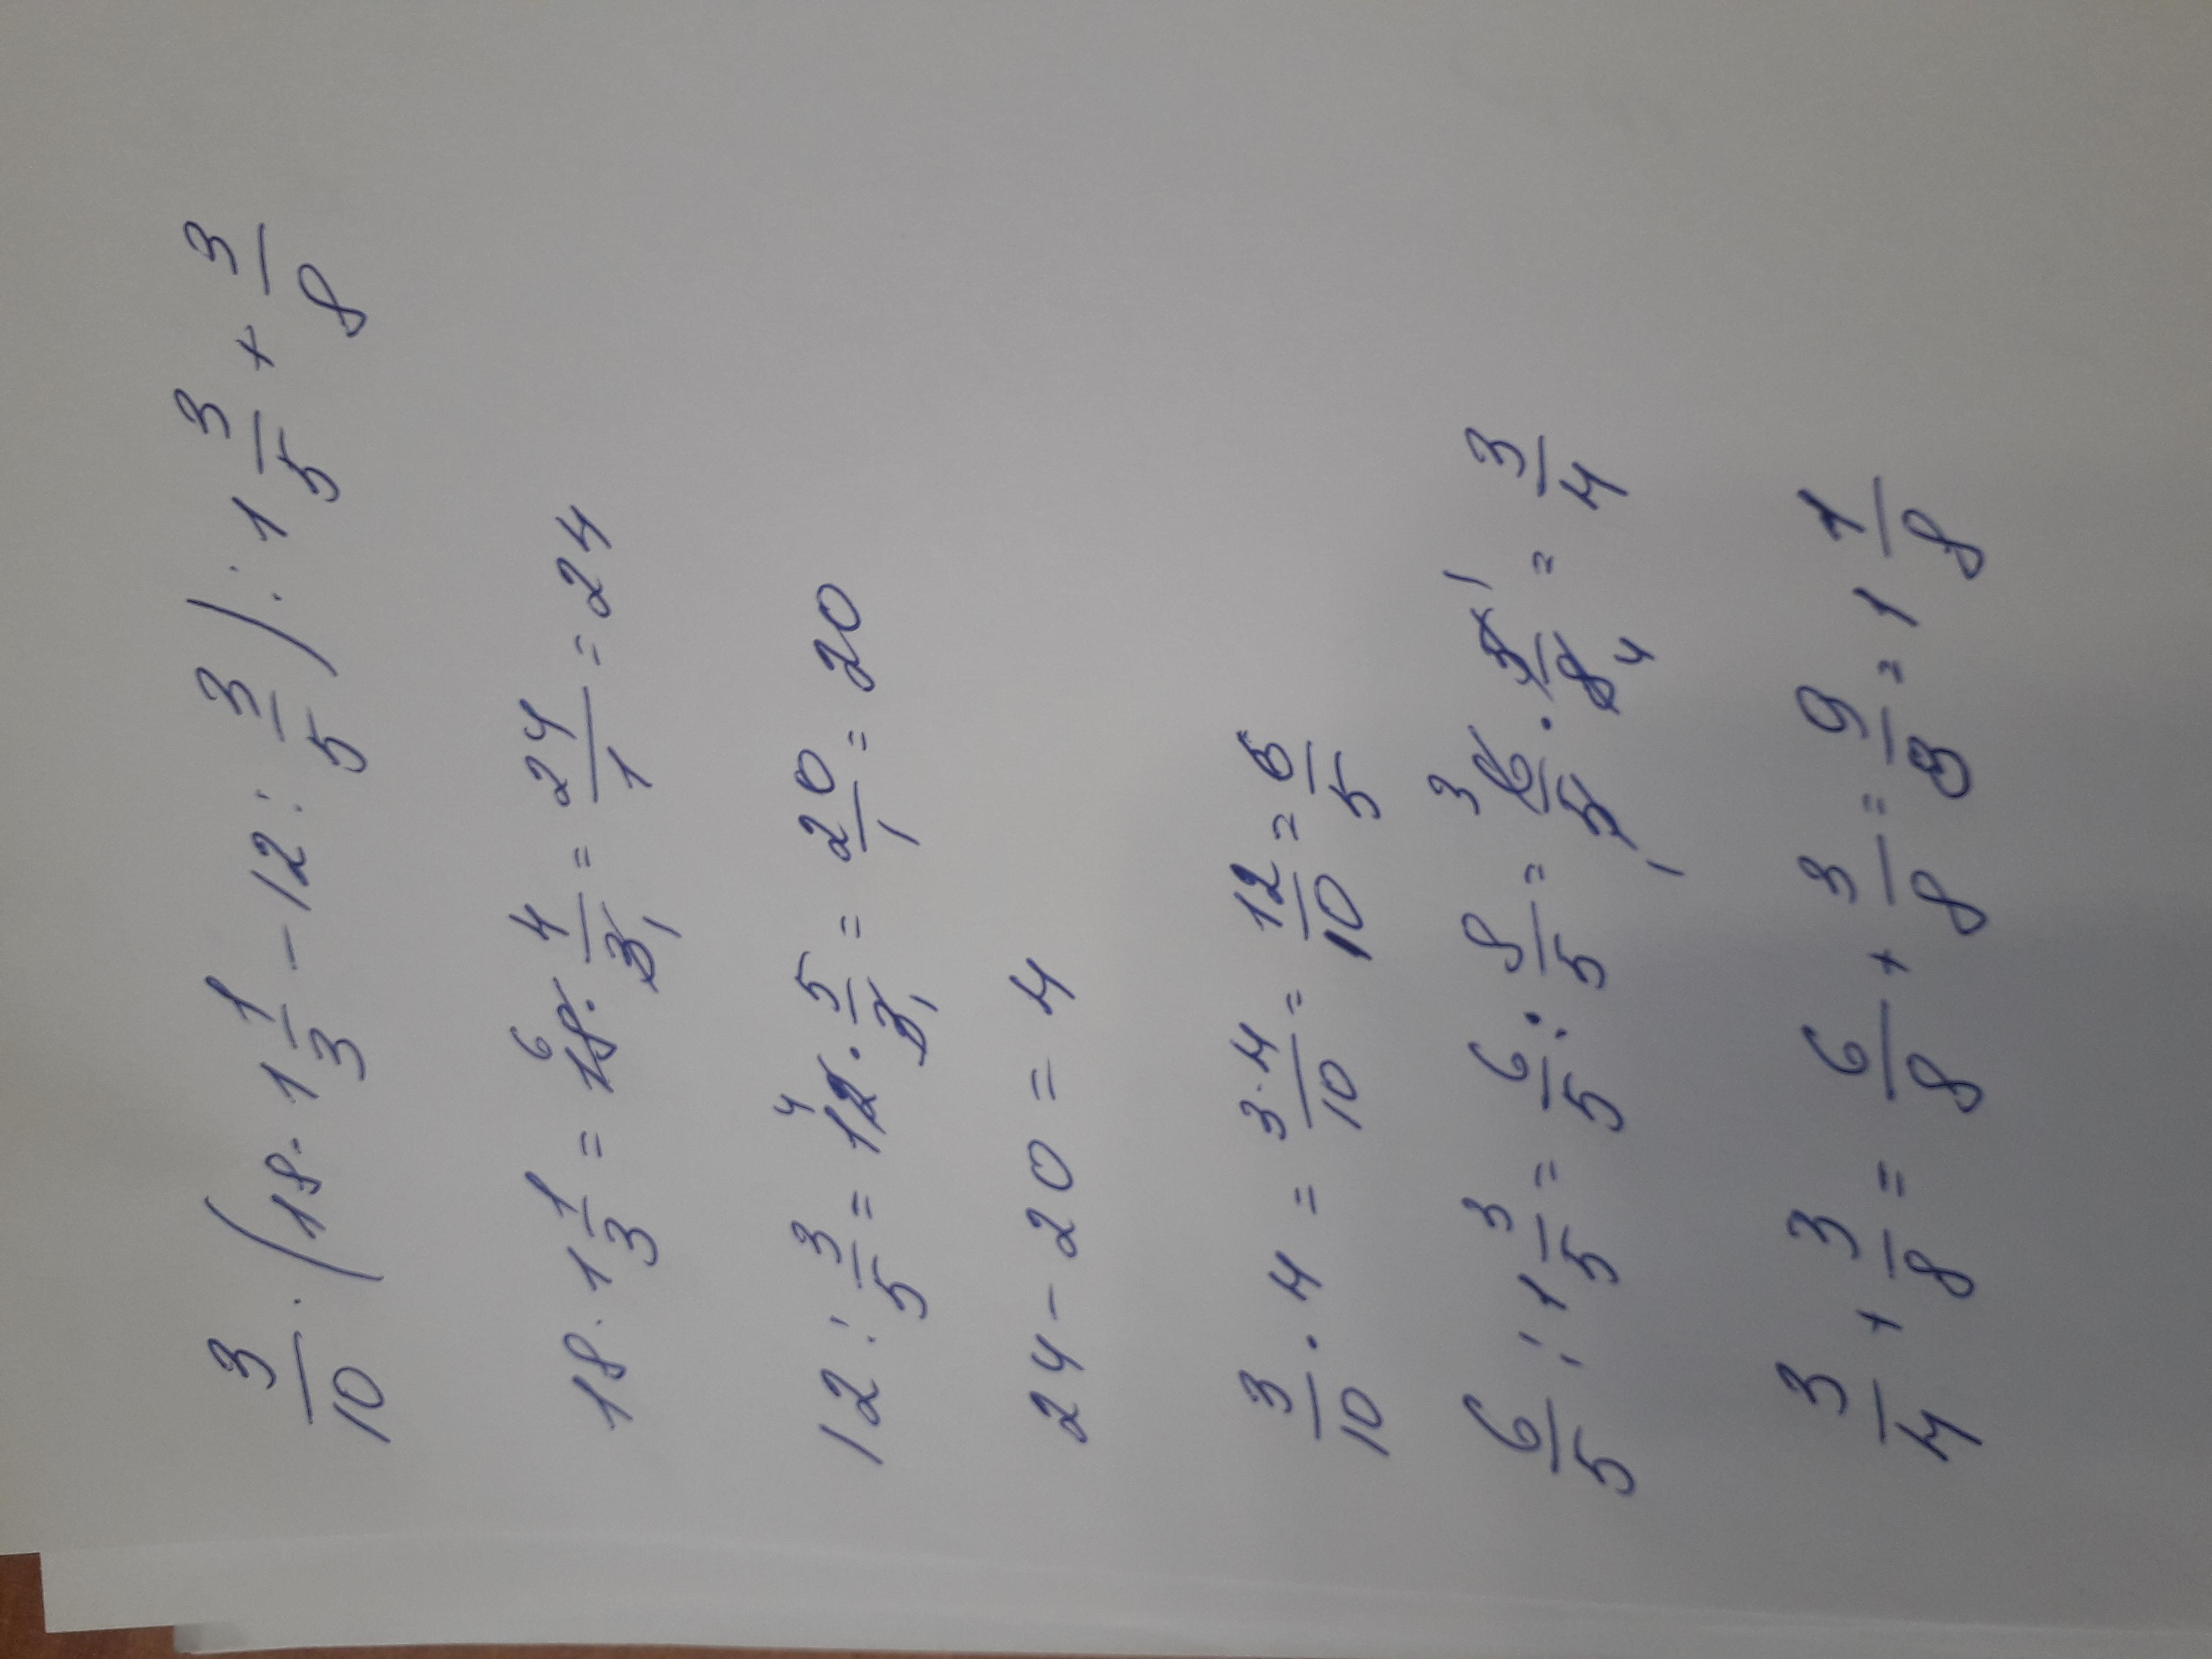 3/10 · (18 · 1 1/3 − 12 : 3/5) : 1 3/5 + 3/8
18 · 1 1/3 = 18 6 · 4/3 1 = 24/1 = 24
12 : 3/5 = 12 4 · 5/3 1 = 20/1 = 20
24 − 20 = 4
3/10 · 4 = 3·4/10 = 12/10 = 6/5
6/5 : 1 3/5 = 6/5 : 8/5 = 3 6/5 1 · 5 1/8 4 = 3/4
3/4 + 3/8 = 6/8 + 3/8 = 9/8 = 1 1/8